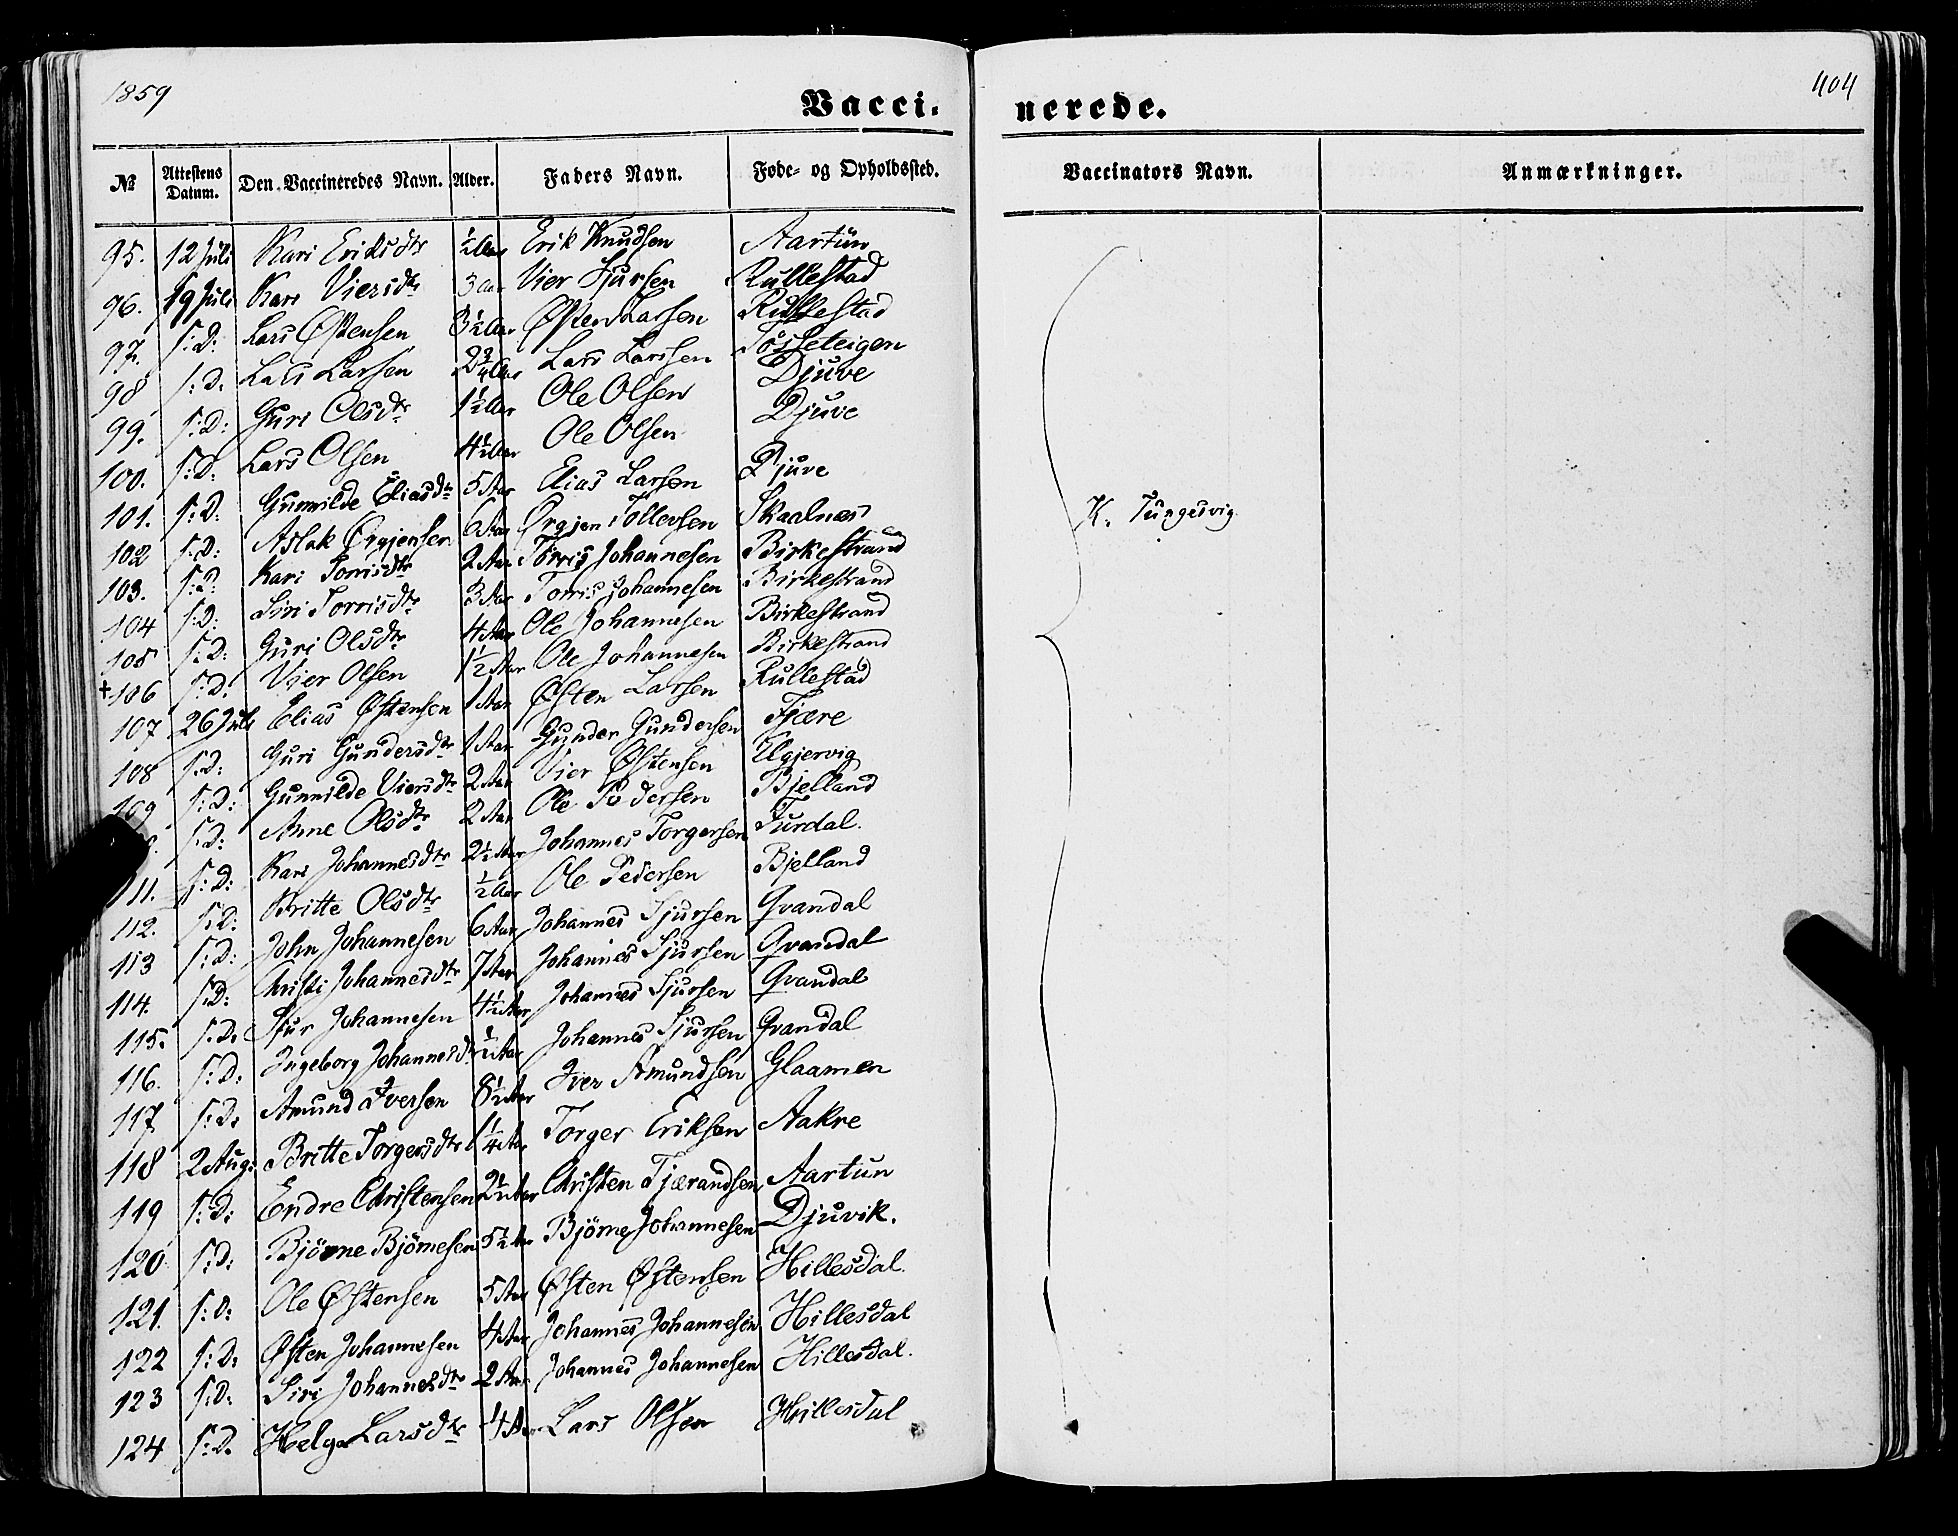 1859
404
Vacci-
nerede.
№ Attestens Datum. Den Vaccineredes Navn. Alder. Faders Navn. Føde- og Opholdssted. Vaccinators Navn. Anmærkninger.
95. 12 Juli Kari Eriksdtr ½ Aar Erik Knudsen Aartun
96. 19 Juli Kari Viersdtr 3 Aar Vier Sjursen Rullestad
97. s:D: Lars Østensen 3½ Aar Østen Larsen Rullestad
98 s:D: Lars Larsen 2¾ Aar Lars Larsen Tosseteigen
99. s:D: Guri Olsdtr 1½ Aar Ole Olsen Djuve
100. s:D: Lars Olsen 4½ Aar Ole Olsen Djuve
101. s:D: Gunnilde Eliasdtr 5 Aar Elias Larsen Djuve
102 s:D: Aslak Ørgjensen 6 Aar Ørgjen Tollevsen Skaalnes
103. s:D: Kari Torrisdtr 2 Aar Torris Johannesen Birkestrand
104 s:D: Siri Torrisdtr 3 Aar Torris Johannesen Birkestrand
105 s:D: Guri Olsdtr 4 Aar Ole Johannesen Birkestrand
+106 s:D: Vier Olsen 1½ Aar Ole Johannesen Birkestrand
107 26 Juli Elias Østensen 1 Aar Østen Larsen Rullestad
108 s:D: Guri Gundersdtr 1 Aar Gunder Gundersen Fjære
109 s:D: Gunnilde Viersdtr 2 Aar Vier Østensen Ugjervig
s:D: Anne Olsdtr 2 Aar Ole Pedersen Bjelland
111. s:D: Kari Johannesdtr 2½ Aar Johannes Torgersen Furdal.
112. s:D: Britte Olsdtr ½ Aar Ole Pedersen Bjelland
113 s:D: John Johannesen 6 Aar Johannes Sjursen Qvandal
114. s:D: Christi Johannesdtr 7 Aar Johannes Sjursen Qvandal
115. s:D: Sjur Johannesen 4½ Aar Johannes Sjursen Qvandal
116. s:D: Ingeborg Johannesdtr ½ Aar Johannes Sjursen Qvandal
117 s:D: Amund Iversen 8½ Aar Iver Amundsen Glaamen
118 2 Aug: Britte Torgersdtr ¼ Aar Torger Eriksen Aakre
119 s:D: Endre Christensen 2½ Aar Christen Tjærandsen Aartun
120 s:D: Bjørne Bjørnesen 5½ Aar Bjørne Johannesen Djuvik.
121. s:D: Ole Østensen 5 Aar Østen Østensen Hillesdal.
122 s:D: Østen Johannesen 4 Aar Johannes Johannesen Hillesdal
123 s:D: Siri Johannesdtr 2 Aar Johannes Johannesen Hillesdal.
124 s:D. Helga Larsdtr ¼ Aar Lars Olsen Hillesdal
K. Tungesvig